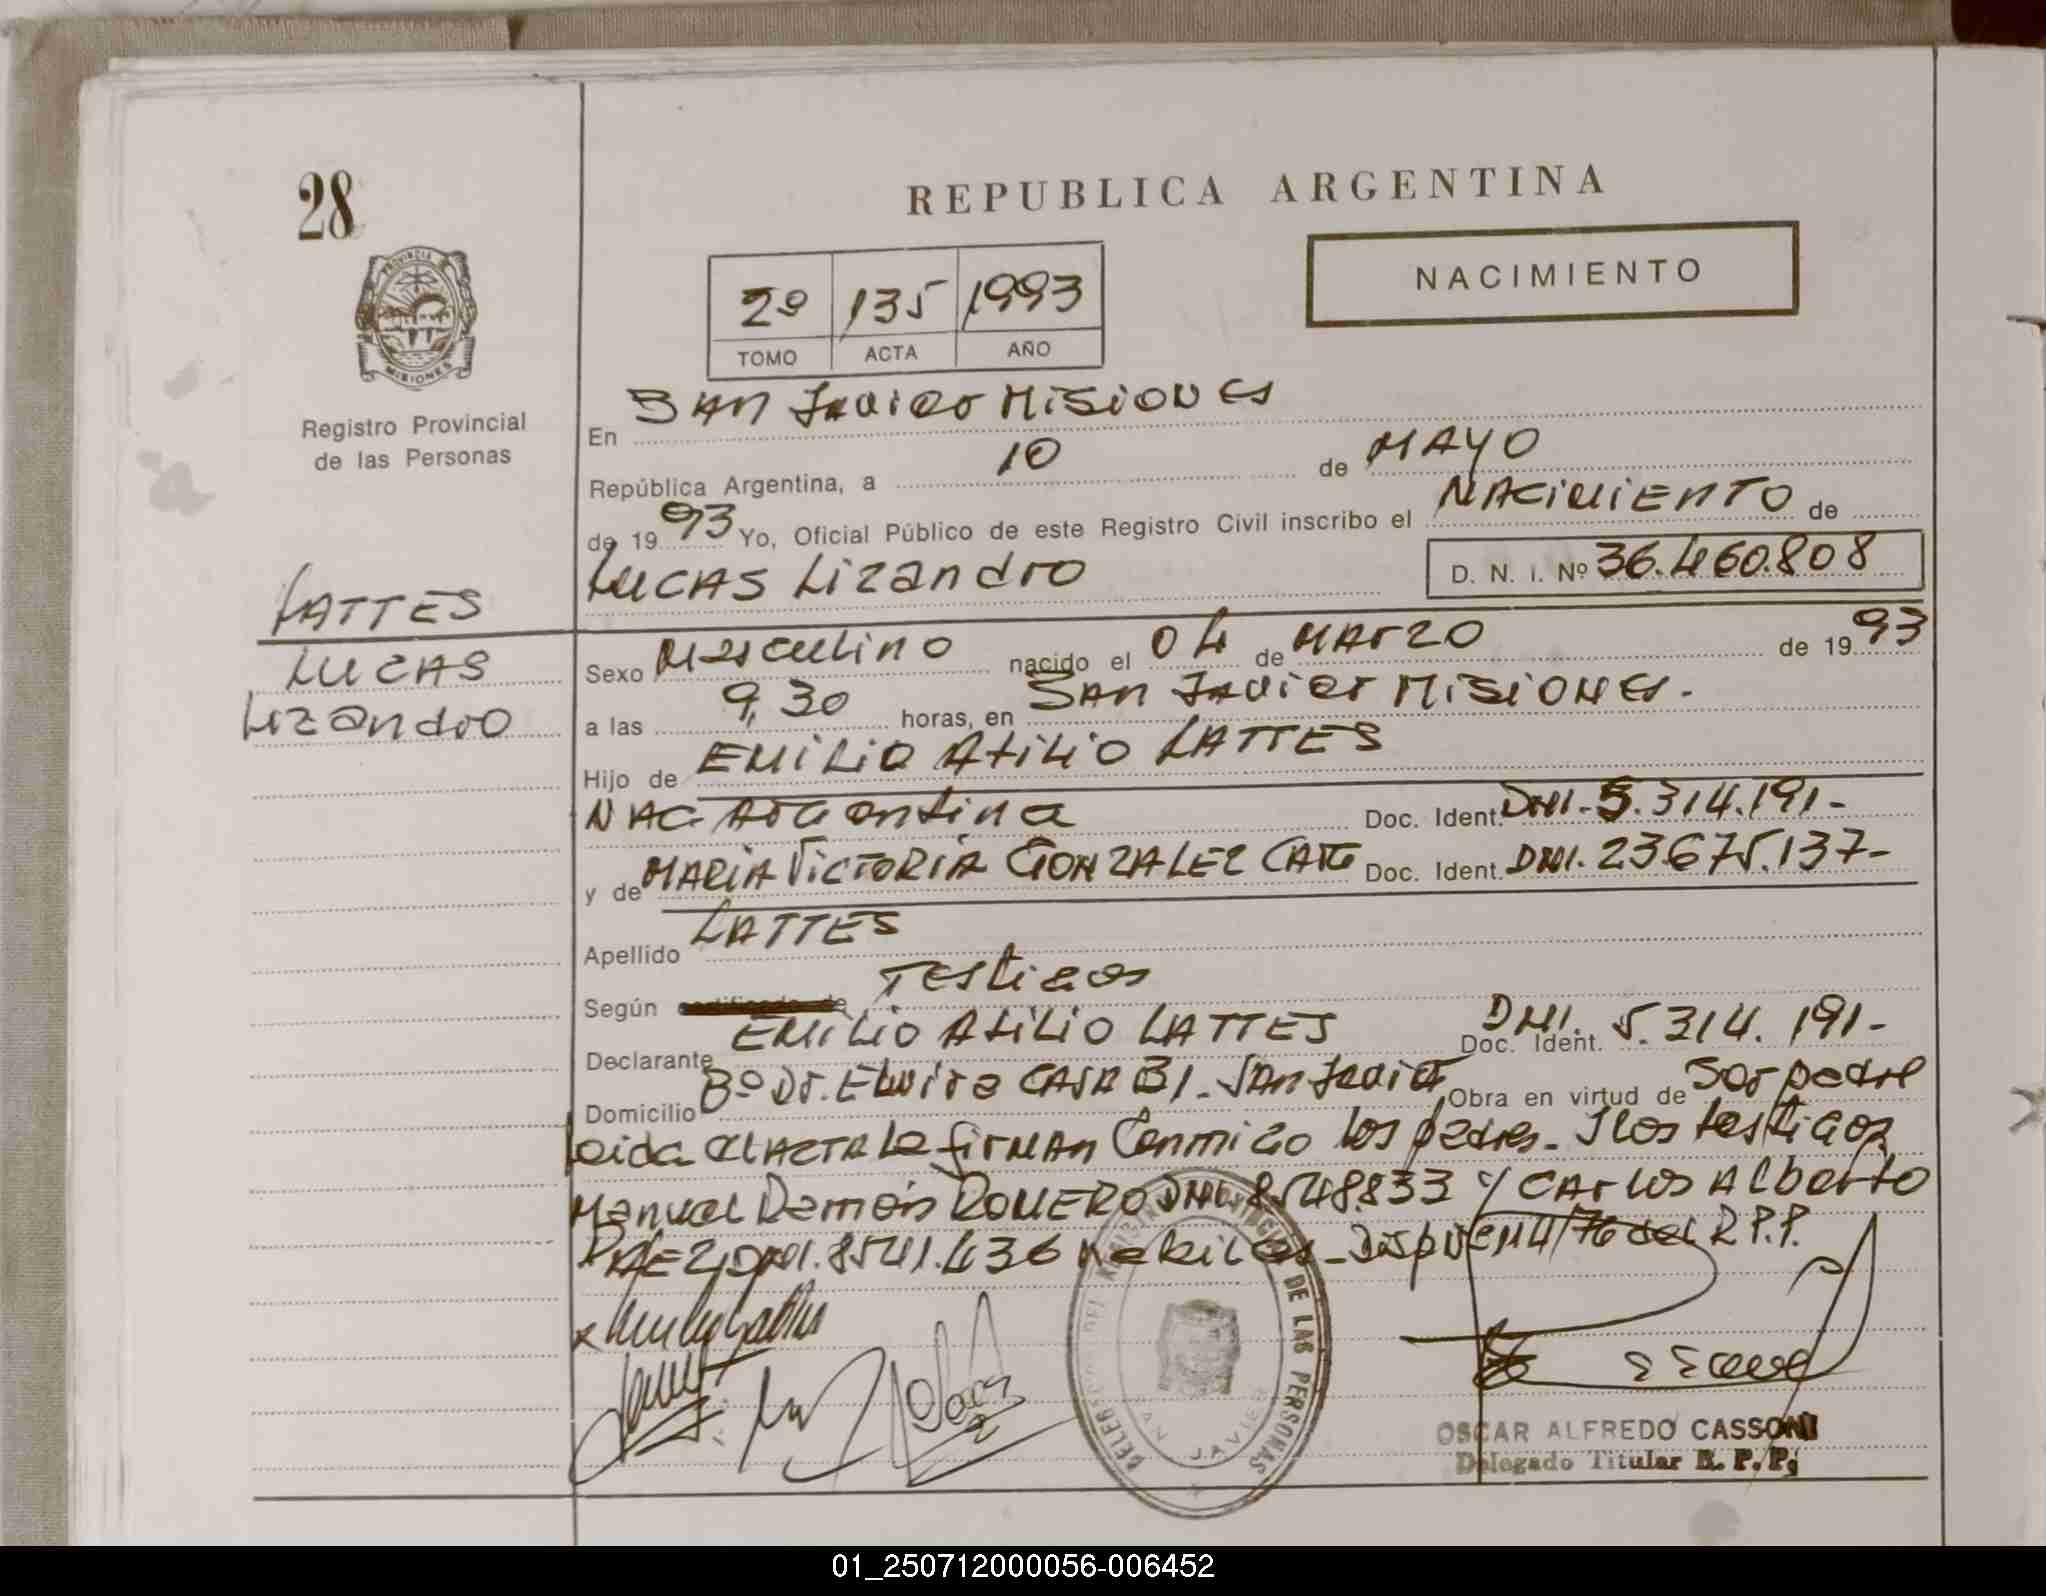 28
REPUBLICA ARGENTINA
NACIMIENTO
2º 135 1993
TOMO ACTA AÑO
PROVINCIA
MISIONES
Registro Provincial
de las Personas
En SAN Javier MISIONES
República Argentina, a 10 de MAYO
de 1993 Yo, Oficial Público de este Registro Civil inscribo el NACIMIENTO de
LUCAS Lizandro D. N. I. Nº 36.460.808
LATTES
LUCAS
Lizandro
Sexo Masculino nacido el 04 de MARZO de 1993
a las 9,30 horas, en SAN Javier MISIONES.
Hijo de EMILIO Atilio LATTES
NAC. Argentina Doc. Ident. DNI. 5.314.191-
y de MARIA VICTORIA GONZALEZ Doc. Ident. DNI. 23.675.137-
Apellido LATTES
Según Testigos
Declarante EMILIO Atilio LATTES Doc. Ident. DNI. 5.314.191-
Domicilio Bº Dr. Elvira CASA 31. San Javier Obra en virtud de Ser padre
Leida el ACTA la firman Conmigo los padres. Y los testigos
Manuel Ramón ROMERO DNI. 8.548.833 y CARLOS Alberto
PAEZ, DNI. 8541.436 Disp. 4/76 del R.P.P.
DE LAS PERSONAS
SAN JAVIER
OSCAR ALFREDO CASSONI
Delegado Titular R. P. P.
01_250712000056-006452